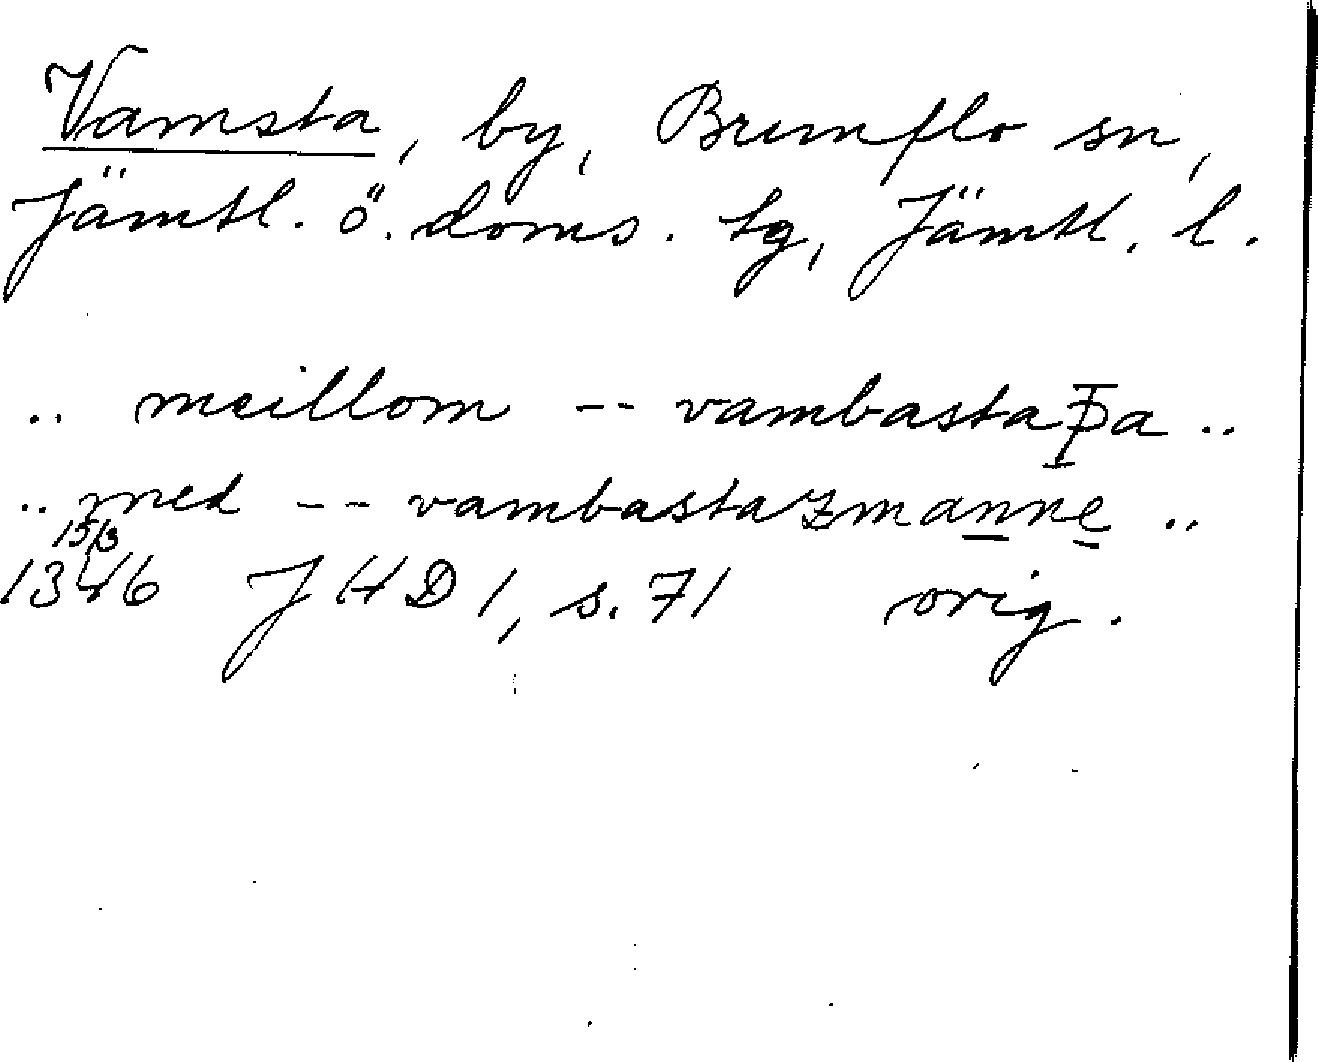 Vamsta, by, Brunflo sn,
Jämtl. ö. doms. tg, Jämtl. l.
.. meillom -- vambastaþa ..
.. med -- vambastazmanne ..
15/3
1346 JHD 1, s. 71 orig.